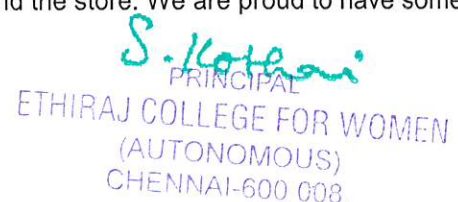 nd the store. We are proud to have some
S. Kothai
PRINCIPAL
ETHIRAJ COLLEGE FOR WOMEN
(AUTONOMOUS)
CHENNAI-600 008